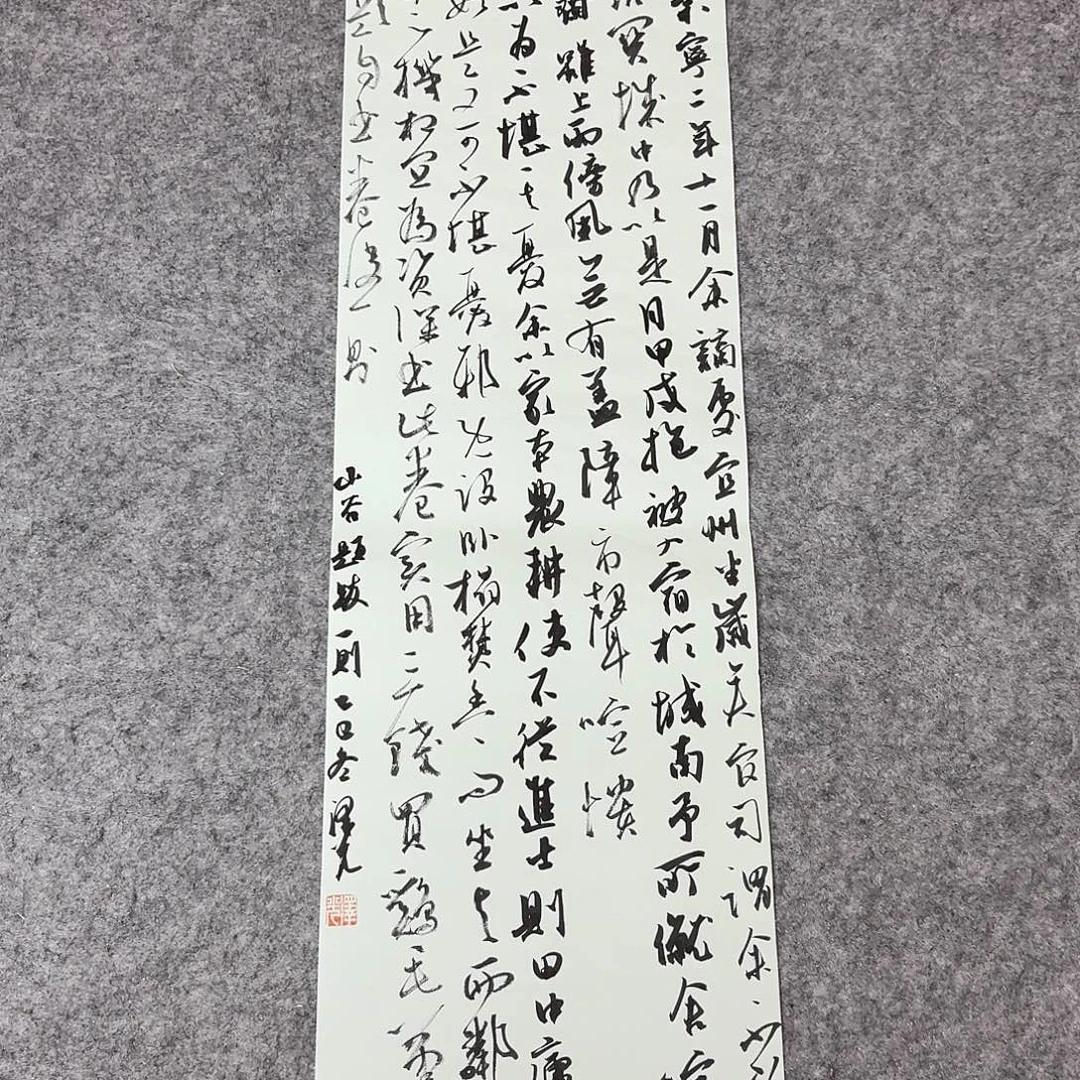 寧二年十一月余謫處宜州半歲矣官司謂余不
関城中乃以是月甲戌抱被入宿於城南予所僦舍
雖上雨傍風無有蓋障市聲喧憒
以為不堪其憂余以家本農耕使不從進士則田中廬
如是又可不堪憂邪既設臥榻焚香而坐与西鄰
之機相直為資深書此卷實用三錢買雞毛筆
題自書卷後一則
山谷題跋一則乙巳冬澤光